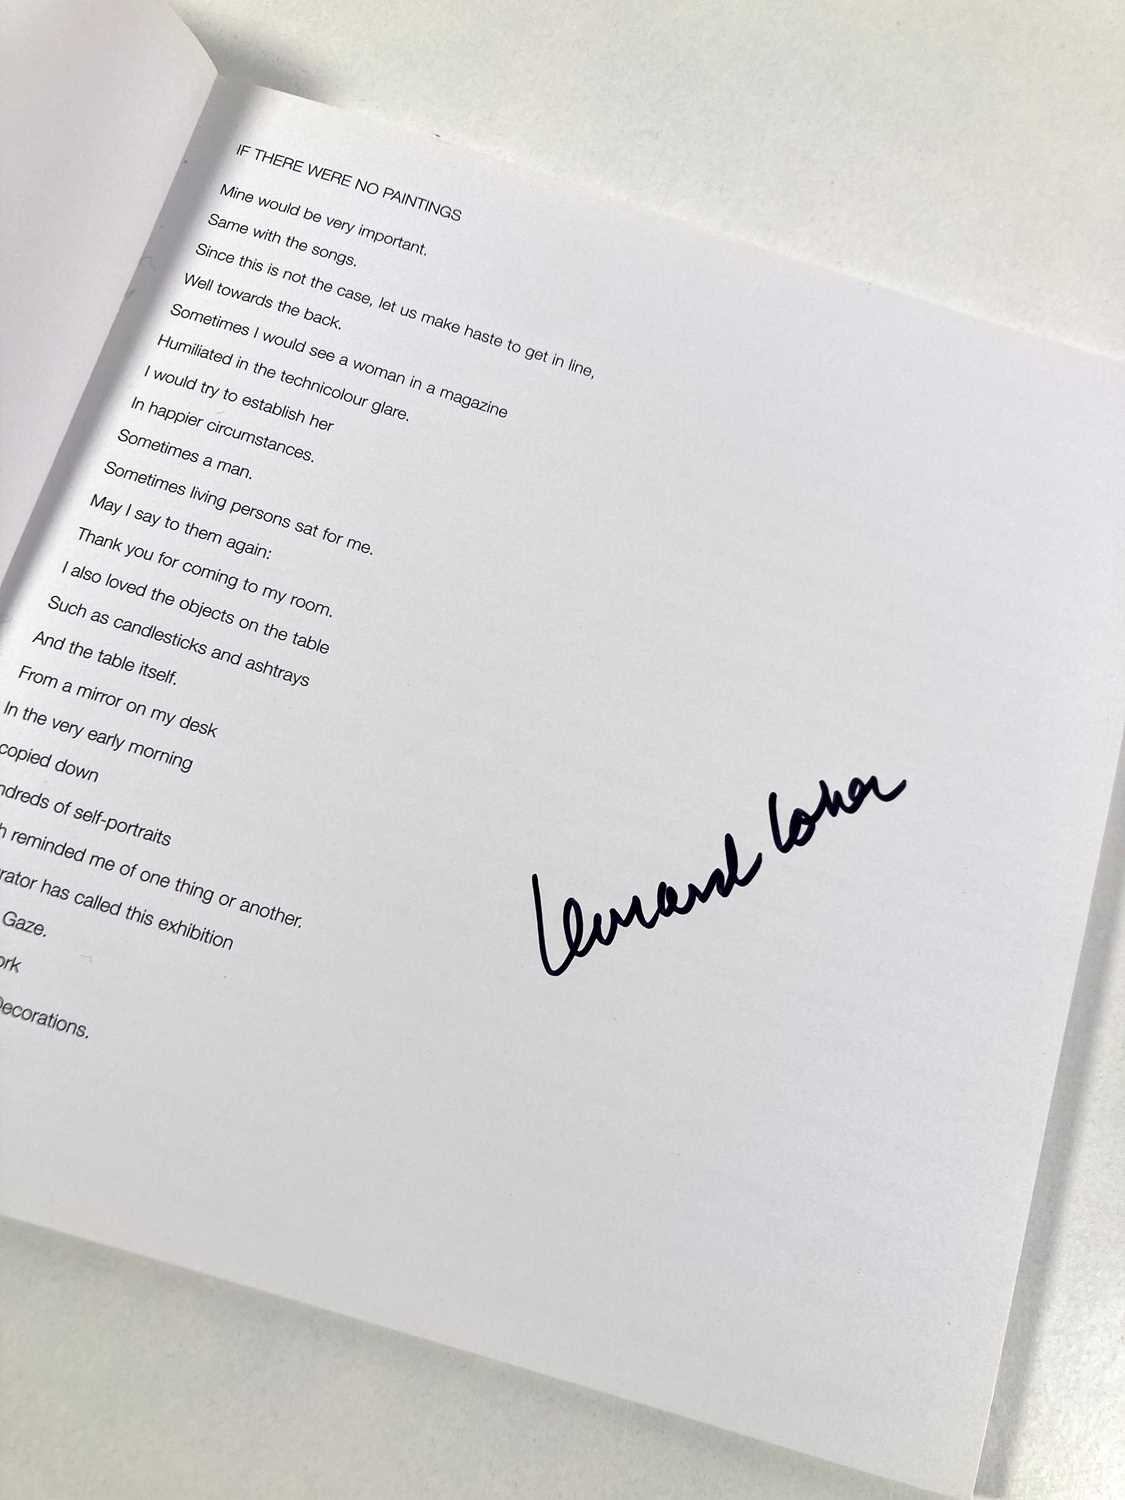 IF THERE WERE NO PAINTINGS
Mine would be very important.
Same with the songs.
Since this is not the case, let us make haste to get in line,
Well towards the back.
Sometimes I would see a woman in a magazine
Humiliated in the technicolour glare.
I would try to establish her
In happier circumstances.
Sometimes a man.
Sometimes living persons sat for me.
May I say to them again:
Thank you for coming to my room.
I also loved the objects on the table
Such as candlesticks and ashtrays
And the table itself.
From a mirror on my desk
In the very early morning
copied down
ndreds of self-portraits
h reminded me of one thing or another.
rator has called this exhibition
Gaze.
ork
Decorations.
Leonard Cohen